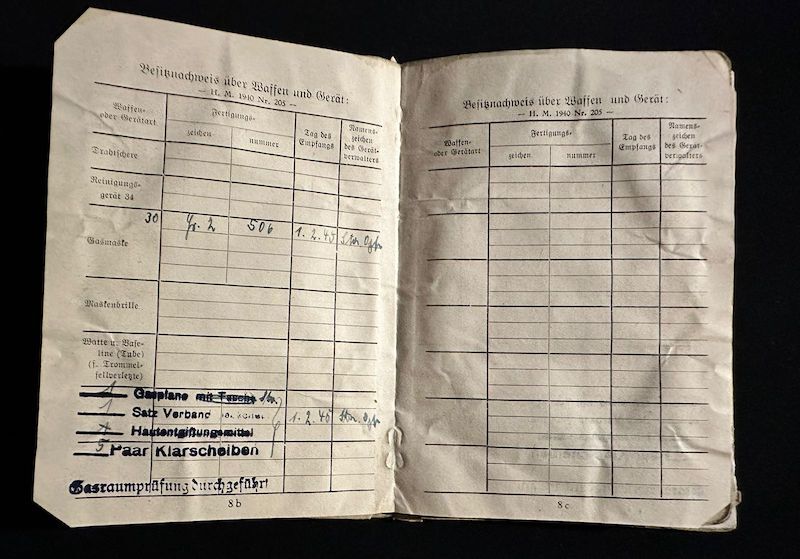 Besitznachweis über Waffen und Gerät:
— H. M. 1940 Nr. 205 —
Waffen- oder Gerätart
Fertigungs-
zeichen
nummer
Tag des Empfangs
Namens-zeichen des Gerät-verwalters
Drahtschere
Reinigungs-
gerät 34
Gasmaske 30 Gr. 2 506 1. 2. 45
Maskenbrille
Watte u. Vase-
line (Tube)
(f. Trommel-
fellverletzte)
1 Gasplane mit Tasche
1 Satz Verband 1. 2. 45
Hautentgiftungsmittel
5 Paar Klarscheiben
Gasraumprüfung durchgeführt
8 b
Besitznachweis über Waffen und Gerät:
— H. M. 1940 Nr. 205 —
Waffen- oder Gerätart
Fertigungs-
zeichen
nummer
Tag des Empfangs
Namens-zeichen des Gerät-verwalters
8 c